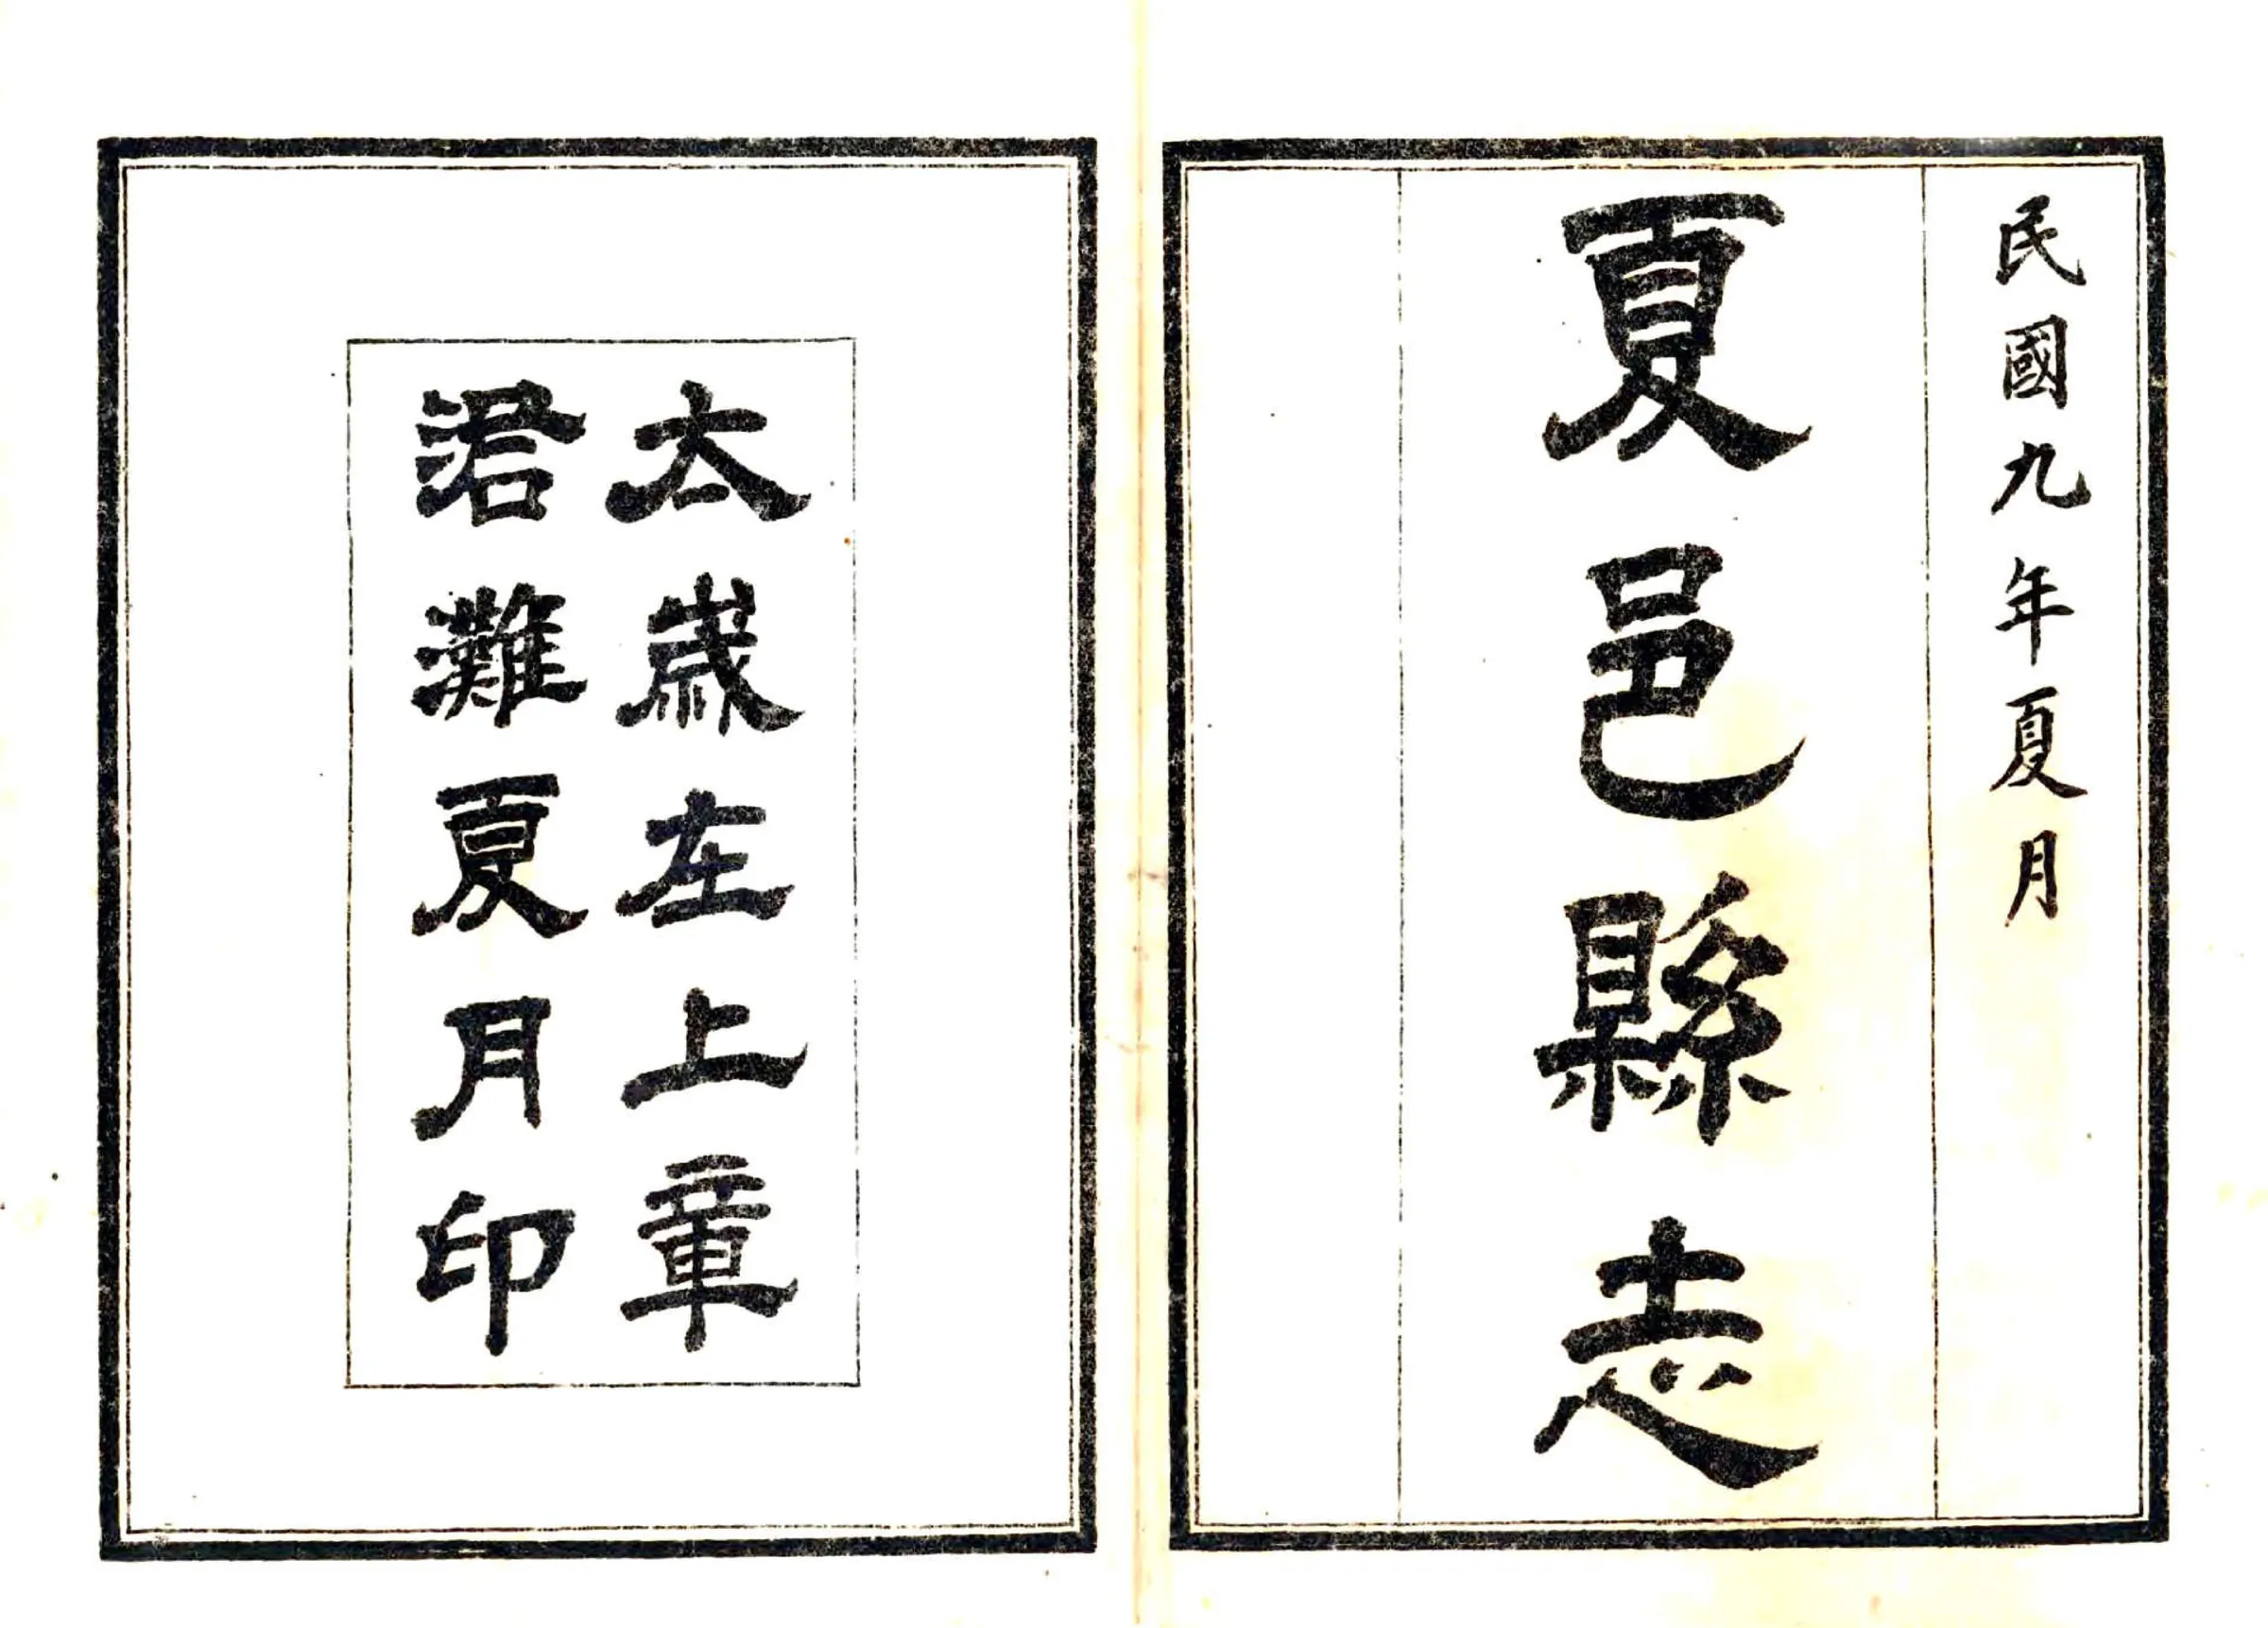 民國九年夏月
夏邑縣志
太嵗在上章
涒灘夏月印